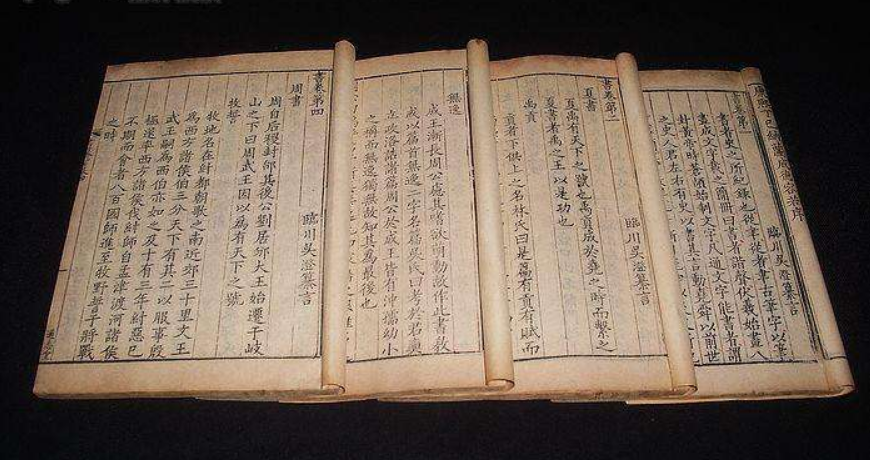 康熙丁巳納蘭成德容若序
書卷第一
臨川吳澄纂言
書者史之所紀錄也從聿從者聿古筆字以筆
畫成文字載之簡冊曰書者諧聲伏羲始畫八
卦黃帝時蒼頡始制文字凡通文字能書者謂
之史人君左右有史以書其言動堯舜以前世
書卷第二
臨川吳澄纂言
夏書
夏禹有天下之號也禹貢成於堯之時而繫之
夏書者禹之王以是功也
禹貢
貢者下供上之名林氏曰是篇有貢有賦而
無逸
成王漸長周公慮其嗜欲萌動故作此書教
戒以篇首無逸二字名篇吳氏曰考於君奭
立政洛誥諸篇周公於成王皆有沖孺幼小
之稱而無逸獨無故知其為最後也
書卷第四
臨川吳澄纂言
周書
周自后稷封邰其後公劉居邠大王始遷于岐
山之下曰周武王因以為有天下之號
牧誓
牧地名在紂都朝歌之南近郊三十里文王
為西方諸侯伯三分天下有其二以服事殷
武王嗣為西伯亦如之及十有三年紂惡已
極遂率西方諸侯伐紂師自孟津渡河諸侯
不期而會者八百國師進至牧野誓于將戰
之時